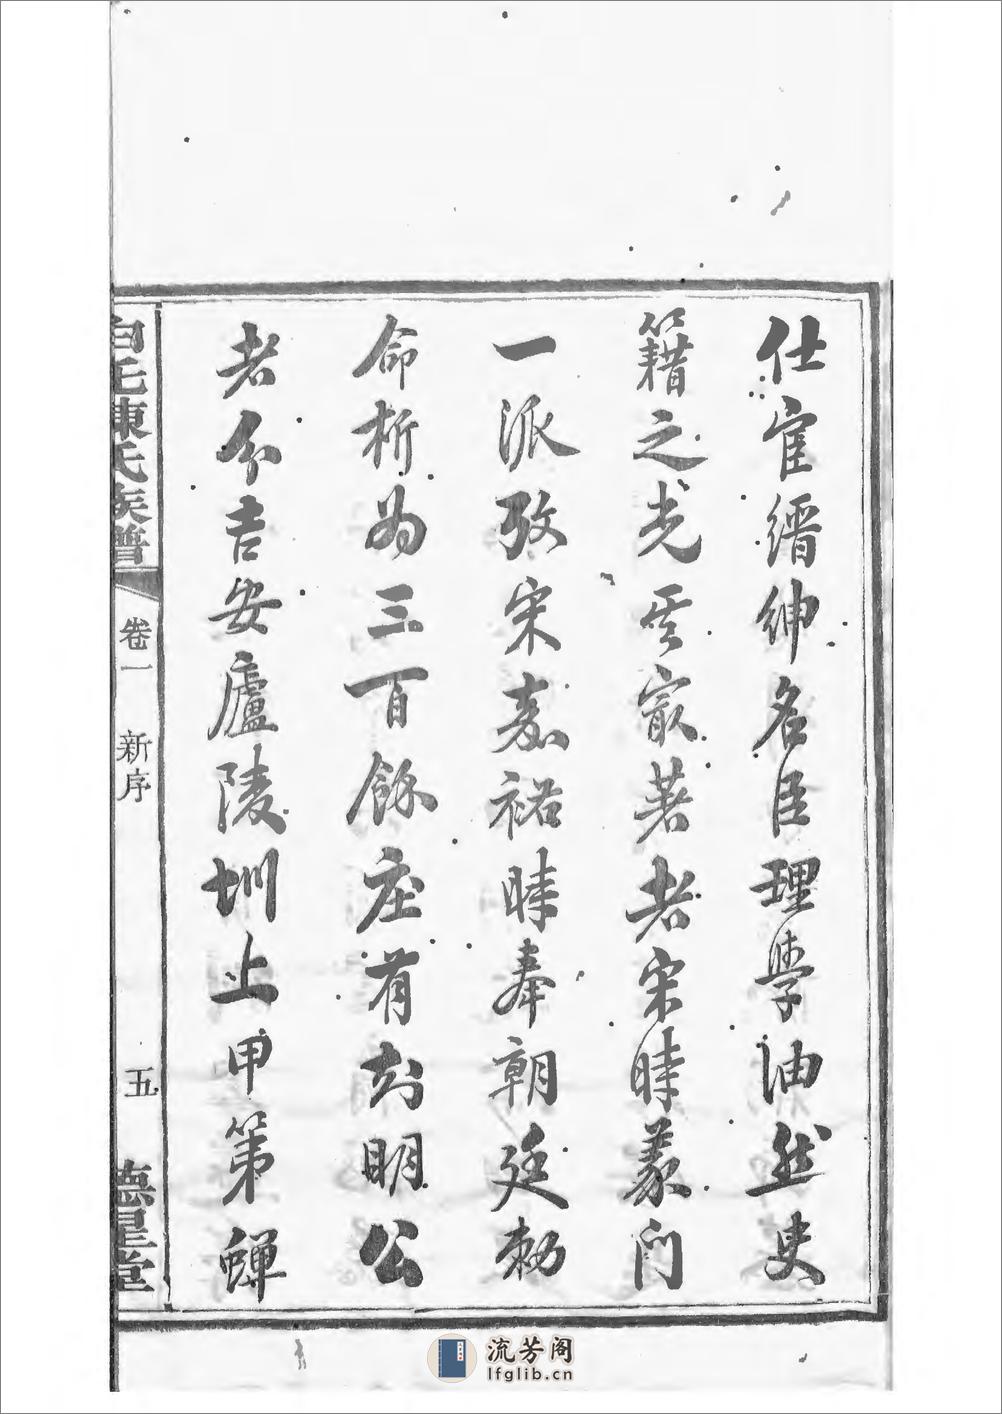 仕宦縉紳名臣理學油然史
籍之光其最著者宋時義門
一派攷宋嘉祐時奉朝廷勅
命析為三百餘庄有知明公
者分吉安廬陵圳上甲第蟬
陳氏族譜
卷一
新序
五
德星堂
流芳阁
lfglib.cn